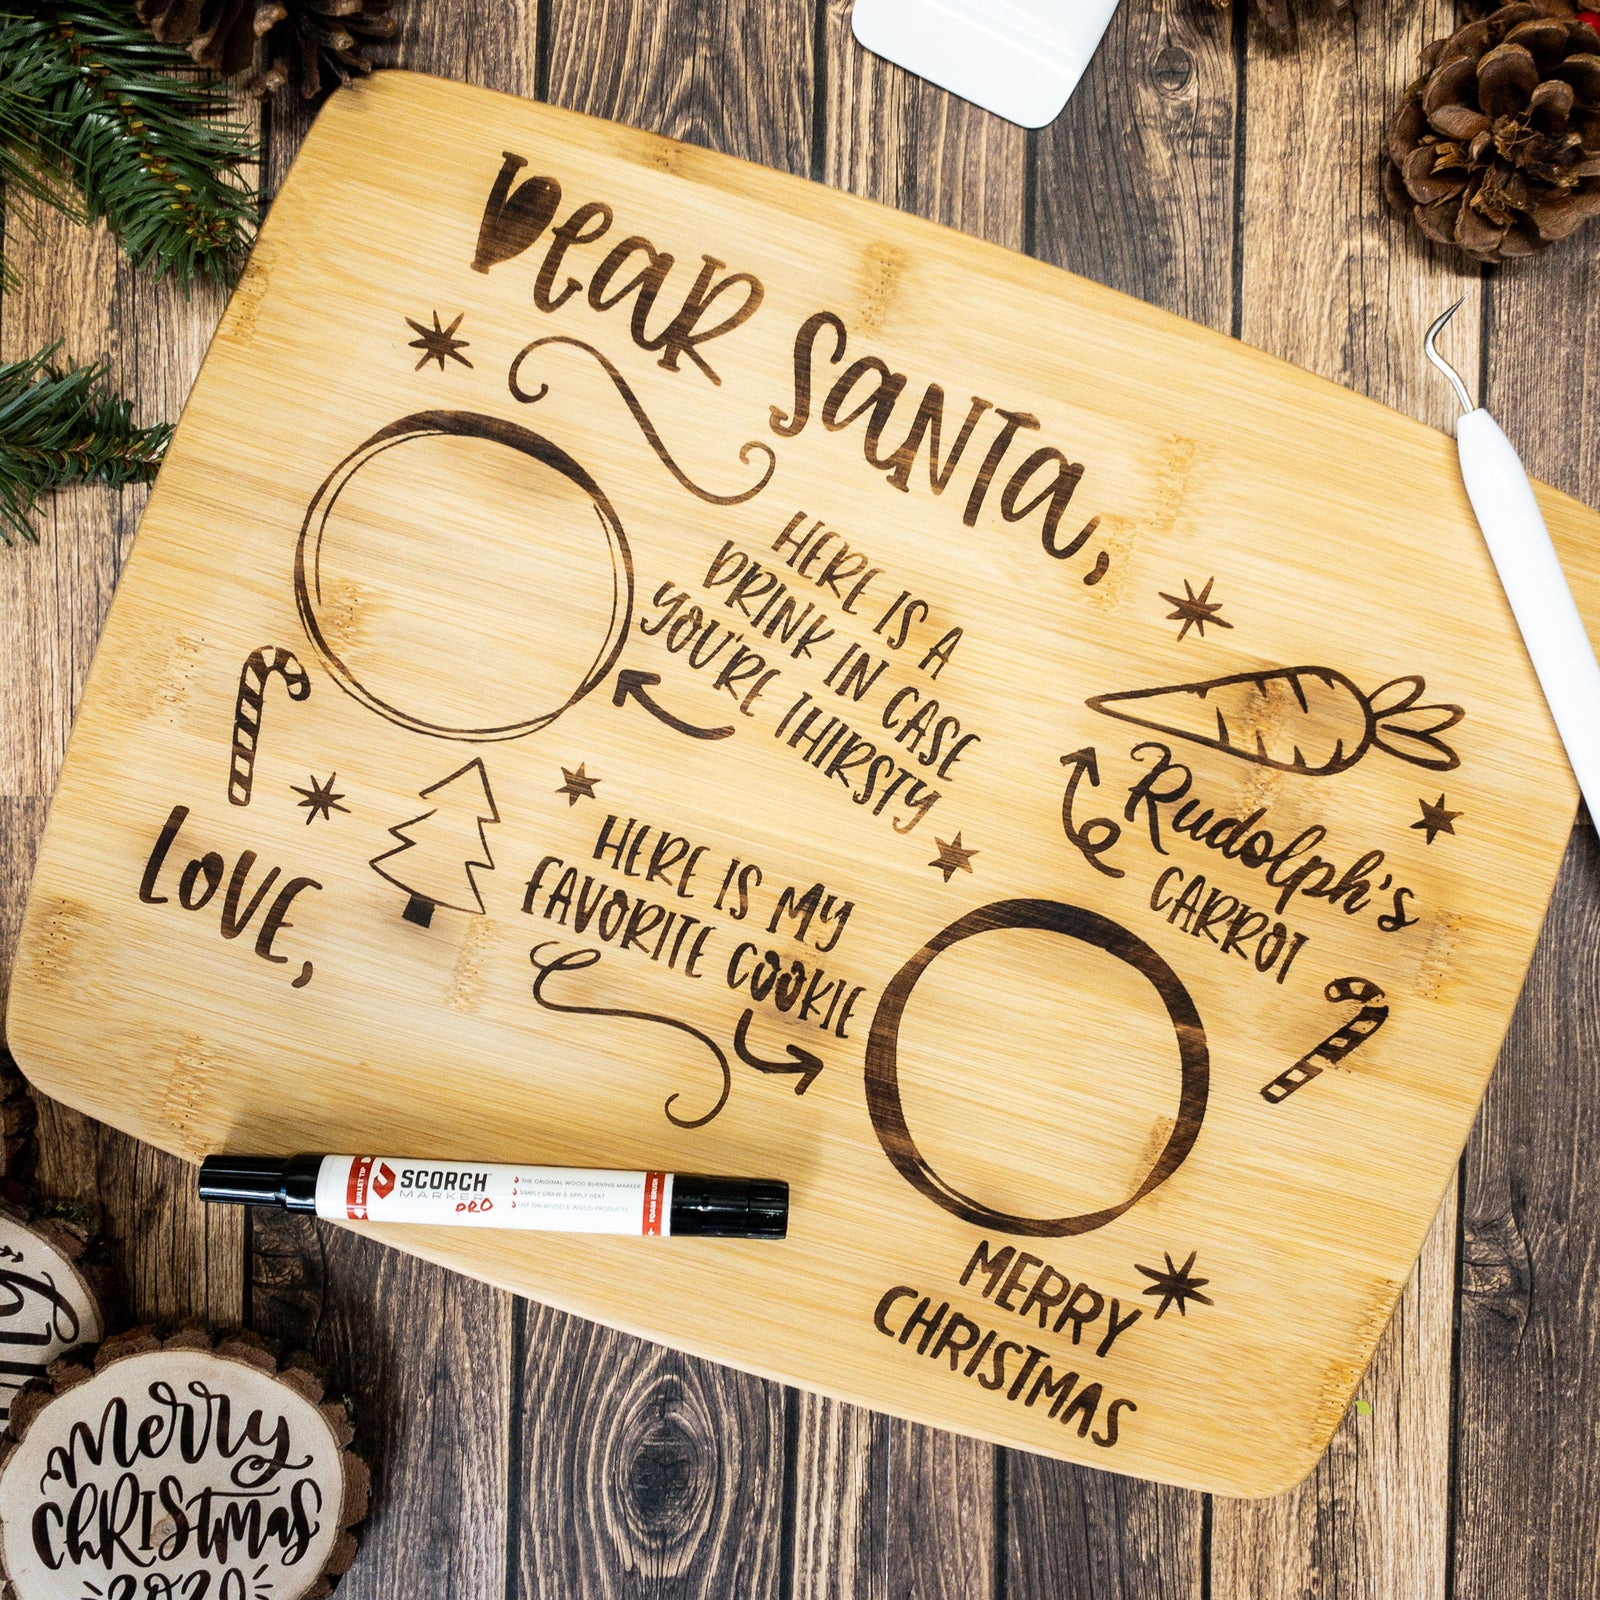 Dear Santa,
HERE IS A
DRINK IN CASE
YOU'RE THIRSTY
Rudolph's
CARROT
HERE IS MY
FAVORITE COOKIE
LOVE,
MERRY
CHRISTMAS
BULLET TIP
SCORCH
MARKER
PRO
THE ORIGINAL WOOD BURNING MARKER
SIMPLY DRAW & APPLY HEAT
USE ON WOOD & WOOD PRODUCTS
FOAM BRUSH
Merry
Christmas
2020